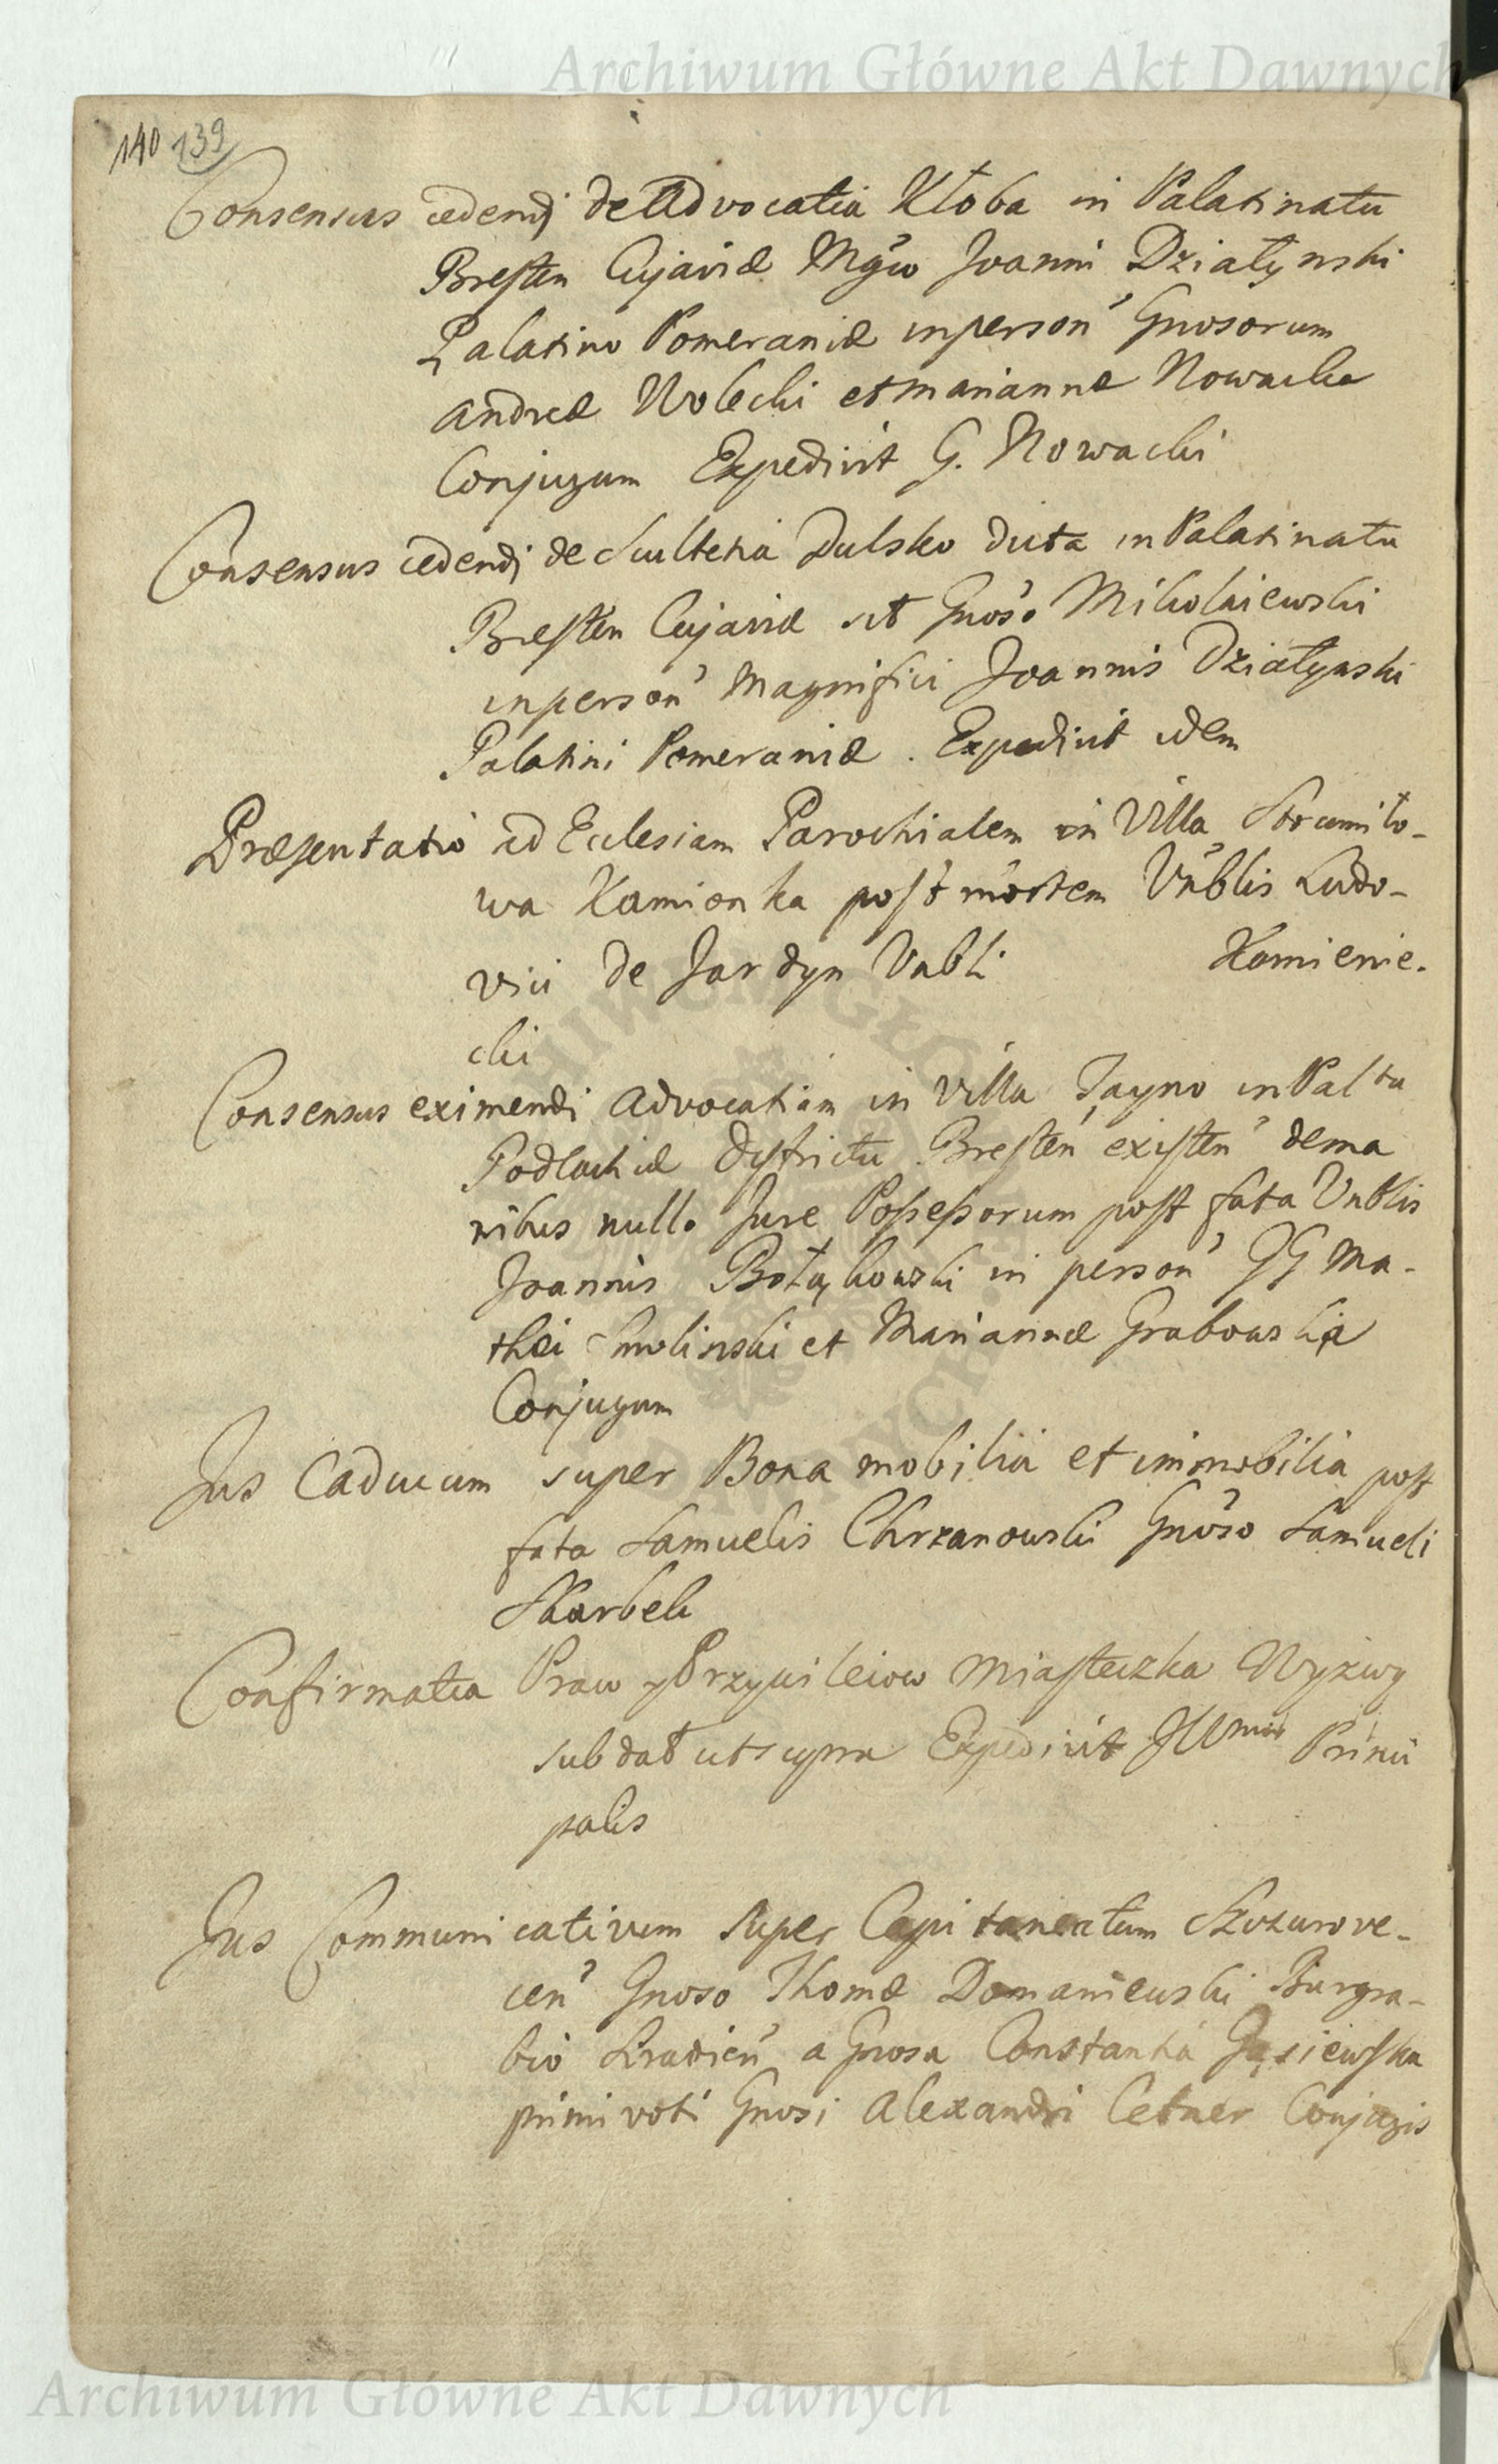 Archiwum Główne Akt Dawnych
140 139
Consensus cedendi de Advocatia Kłoba in Palatinatu
Bresten Cujaviæ Mgco Joanni Działynski
Palatino Pomeraniæ in person Gnosorum
Andreæ Wolecki et Mariannæ Nowacka
Conjugum Expedivit G. Nowacki
Consensus cedendi de Scultetia Dulsko dicta in Palatinatu
Bresten Cujaviæ sit Gnoso Mikolaiewski
in person Magnifici Joannis Działynski
Palatini Pomeraniæ. Expedivit idem
Præsentatio ad Ecclesiam Parochialem in Villa Strumiło-
wa Kamionka post mortem Vnblis Ludo-
vici de Jardyn Vnbli Kamienie.
cki
Consensus eximendi Advocatiam in Villa Tayno in Paltu
Podlachiæ Districtu Bresten existen de ma
nibus nullo Jure Possessorum post fata Vnblis
Joannis Botąkowski in person GG Ma-
thei Smolinski et Mariannæ Grabowskie
Conjugum
Jus Caducum super Bona mobilia et immobilia post
fata Samuelis Chrzanowski Gnoso Samueli
Skarbek
Confirmatia Praw y Przywileiow Miasteczka Wyzwy
sub dat ut supra Expedivit Illmus Princi
palis
Jus Communicativum super Capitaneatum Szczurowe-
cen Gnoso Thomæ Domaniewski Burgra-
bio Siradien a Gnosa Constantia Gąsiewska
primi voti Gnosi Alexandri Cetner Conjugis
Archiwum Główne Akt Dawnych